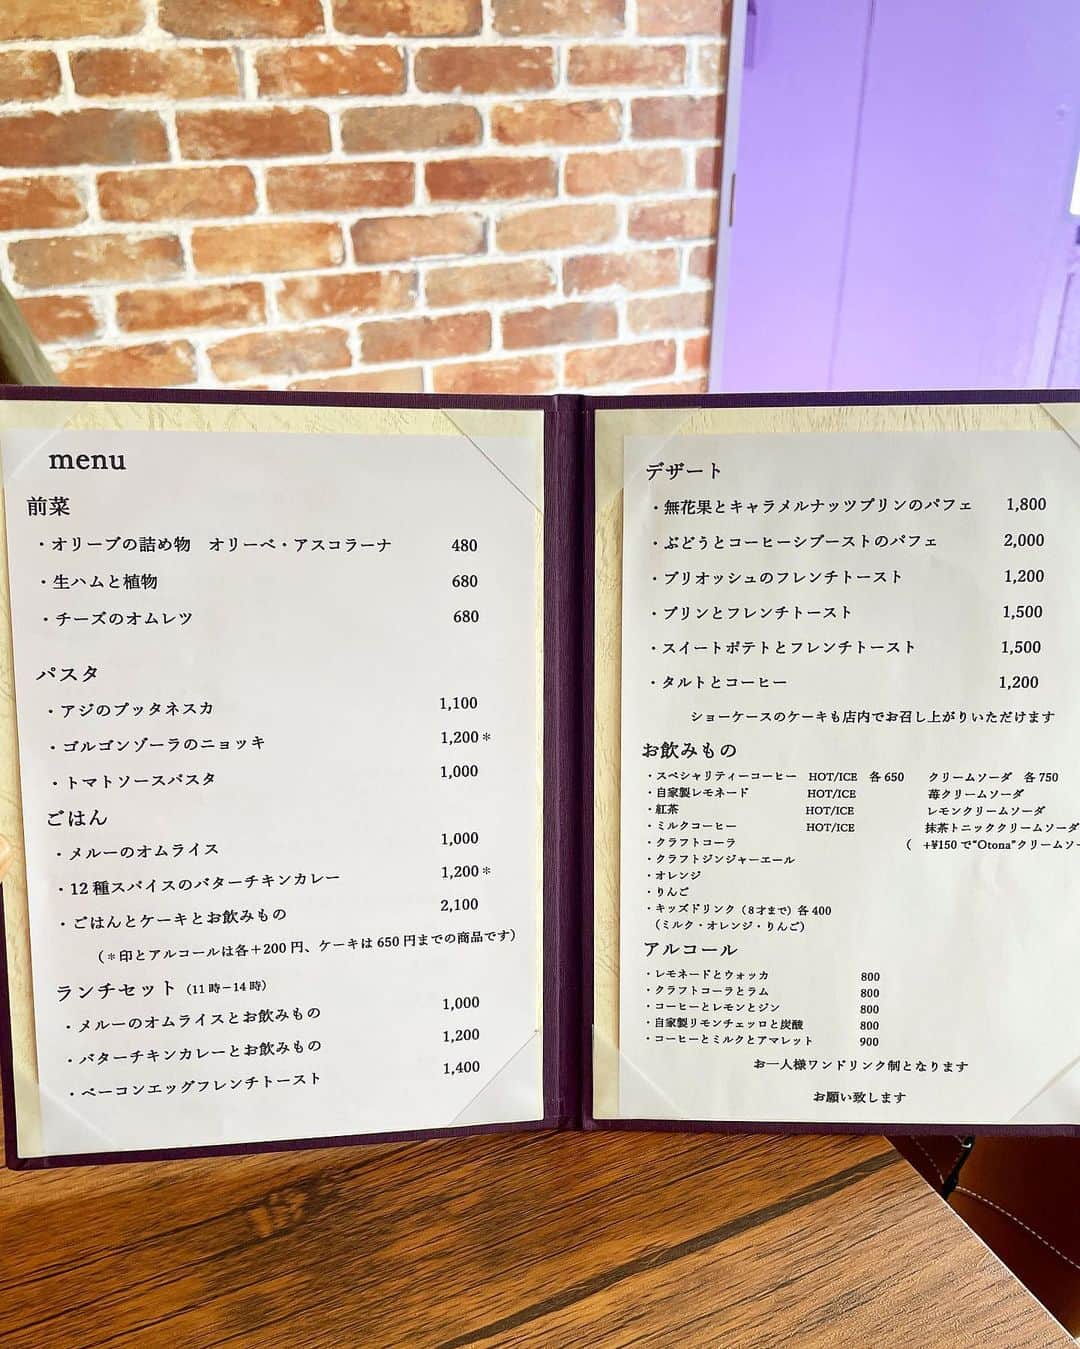 menu
前菜
・オリーブの詰め物　オリーベ・アスコラーナ　480
・生ハムと植物　680
・チーズのオムレツ　680
パスタ
・アジのプッタネスカ　1,100
・ゴルゴンゾーラのニョッキ　1,200＊
・トマトソースパスタ　1,000
ごはん
・メルーのオムライス　1,000
・12種スパイスのバターチキンカレー　1,200＊
・ごはんとケーキとお飲みもの　2,100
（＊印とアルコールは各＋200円、ケーキは650円までの商品です）
ランチセット（11時－14時）
・メルーのオムライスとお飲みもの　1,000
・バターチキンカレーとお飲みもの　1,200
・ベーコンエッグフレンチトースト　1,400
デザート
・無花果とキャラメルナッツプリンのパフェ　1,800
・ぶどうとコーヒーシブーストのパフェ　2,000
・ブリオッシュのフレンチトースト　1,200
・プリンとフレンチトースト　1,500
・スイートポテトとフレンチトースト　1,500
・タルトとコーヒー　1,200
ショーケースのケーキも店内でお召し上がりいただけます
お飲みもの
・スペシャリティーコーヒー　HOT/ICE　各650　クリームソーダ　各750
・自家製レモネード　HOT/ICE　苺クリームソーダ
・紅茶　HOT/ICE　レモンクリームソーダ
・ミルクコーヒー　HOT/ICE　抹茶トニッククリームソーダ
・クラフトコーラ　（　+¥150で"Otona"クリームソー
・クラフトジンジャーエール
・オレンジ
・りんご
・キッズドリンク（８才まで）各400
（ミルク・オレンジ・りんご）
アルコール
・レモネードとウォッカ　800
・クラフトコーラとラム　800
・コーヒーとレモンとジン　800
・自家製リモンチェッロと炭酸　800
・コーヒーとミルクとアマレット　900
お一人様ワンドリンク制となります
お願い致します